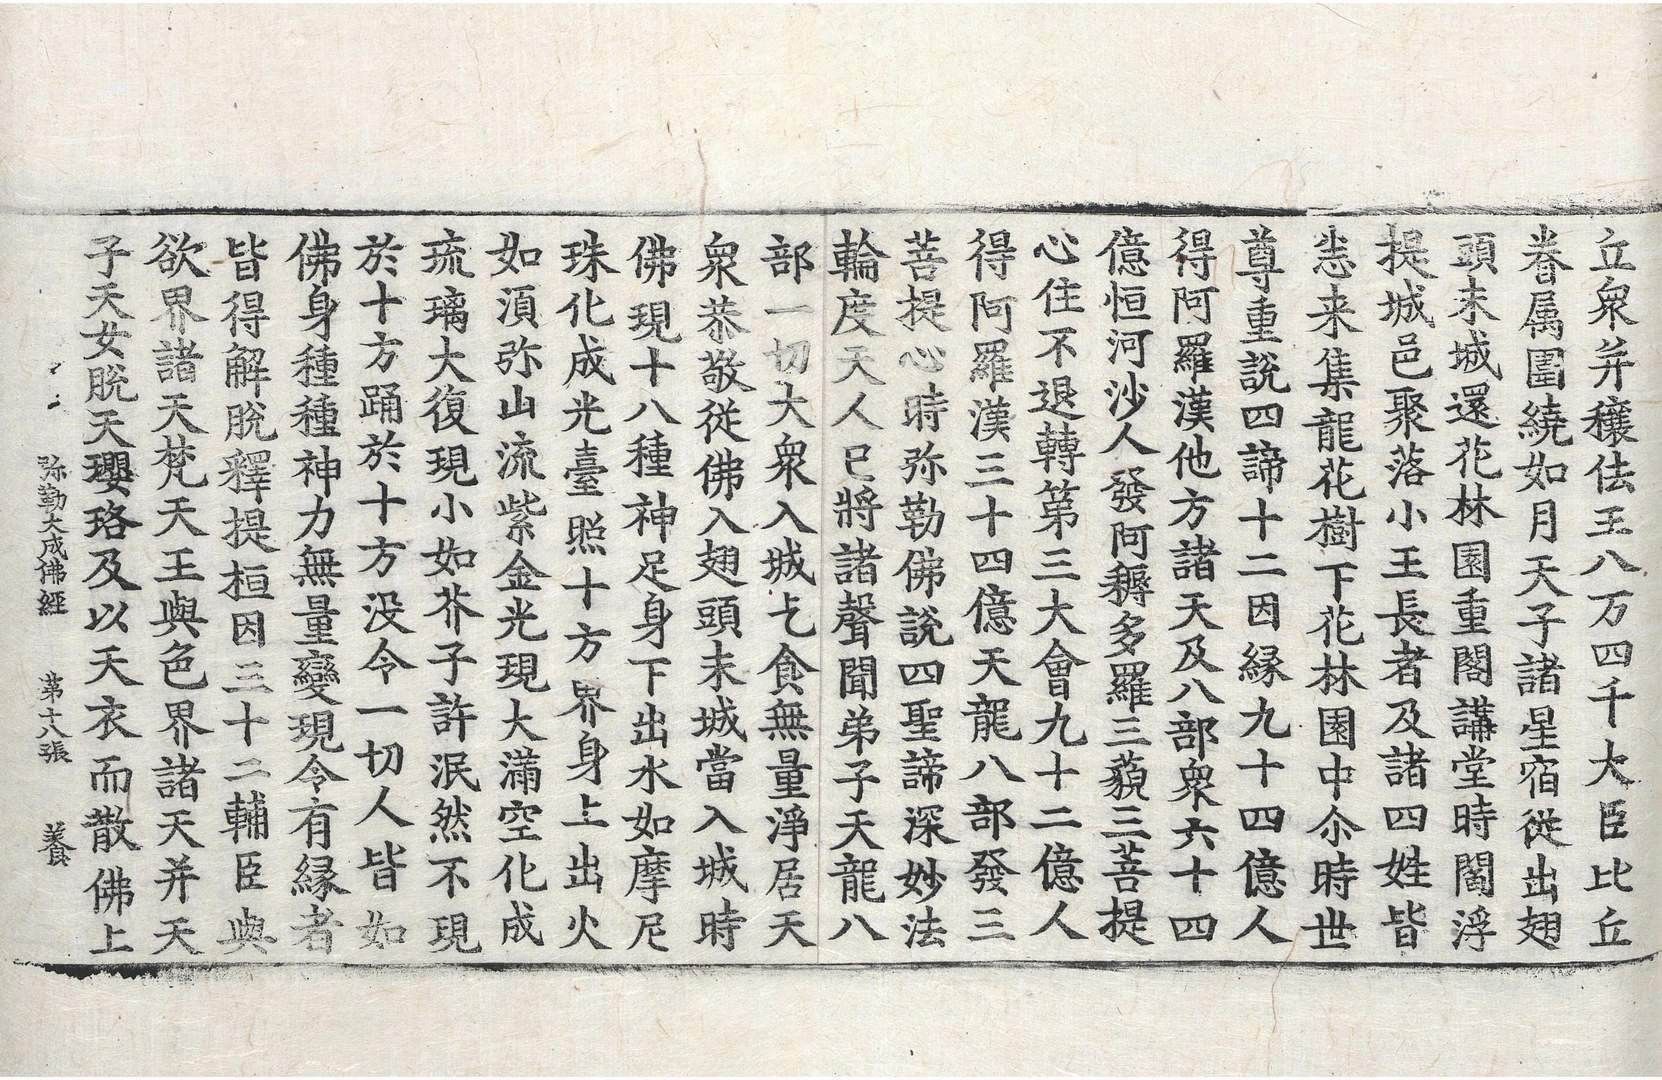 丘衆并穰佉王八万四千大臣比丘
眷属圍繞如月天子諸星宿從出翅
頭末城還花林園重閣講堂時閻浮
提城邑聚落小王長者及諸四姓皆
恚来集龍花樹下花林園中尒時世
尊重說四諦十二因縁九十四億人
得阿羅漢他方諸天及八部衆六十四
億恒河沙人發阿耨多羅三藐三菩提
心住不退轉第三大會九十二億人
得阿羅漢三十四億天龍八部發三
菩提心時弥勒佛說四聖諦深妙法
輪度天人已將諸聲聞弟子天龍八
部一切大衆入城乞食無量淨居天
衆恭敬従佛入翅頭末城當入城時
佛現十八種神足身下出水如摩尼
珠化成光臺照十方界身上出火
如湏弥山流紫金光現大滿空化成
琉璃大復現小如芥子許泯然不現
於十方踊於十方没令一切人皆如
佛身種種神力無量變現令有縁者
皆得解脫釋提桓因三十二輔臣與
欲界諸天梵天王與色界諸天并天
子天女脫天瓔珞及以天衣而散佛上
弥勒大成佛經　第十八張　養